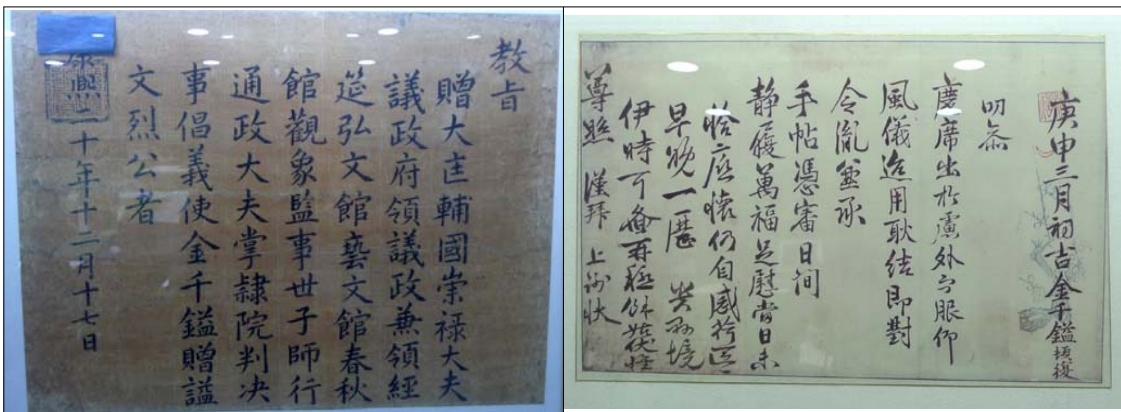 教旨
贈大匡輔國崇禄大夫
議政府領議政兼領經
筵弘文館藝文館春秋
館觀象監事世子師行
通政大夫掌隷院判决
事倡義使金千鎰贈諡
文烈公者
康熙二十年十二月十七日
庚申三月初吉金千鎰
慶席出於慮外
風儀迨用耿結即對
令胤
手帖憑審日间
静履萬福足慰當日未
懷仍自感
早晚一歷
伊時可
尊照 上謝狀